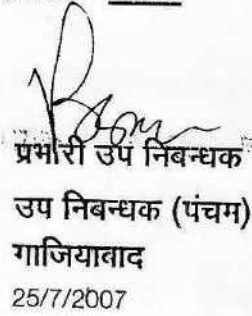 प्रभारी उप निबन्धक
उप निबन्धक (पंचम)
गाजियाबाद
25/7/2007